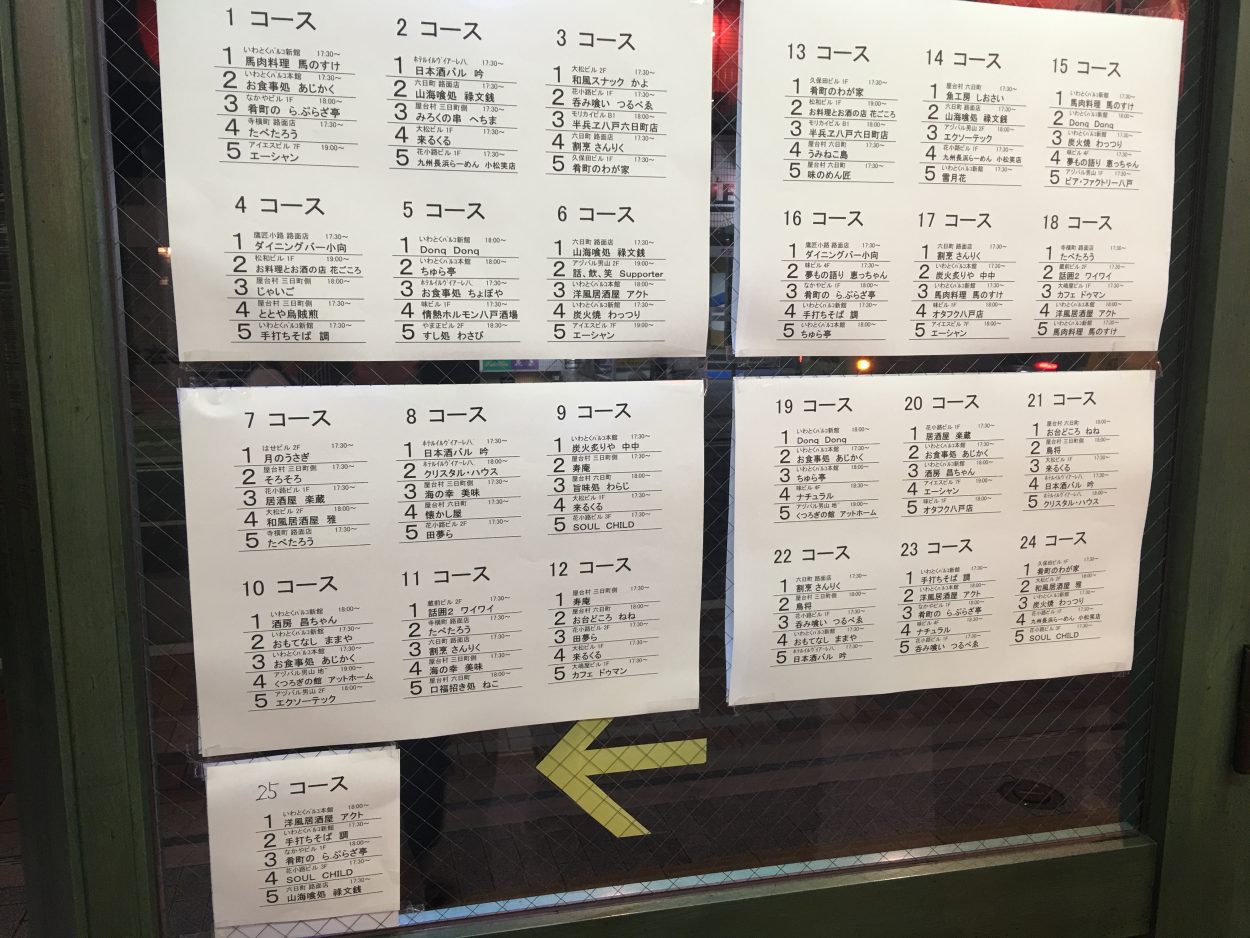 1 コース
いわとくパルコ新館 17:30～
1 馬肉料理 馬のすけ
いわとくパルコ本館 17:30～
2 お食事処 あじかく
なかやビル 1F 18:00～
3 肴町の らぷらざ亭
寺横町 路面店 17:30～
4 たべたろう
アイエスビル 7F 19:00～
5 エーシャン
2 コース
ホテルイルヴィアーレ八 17:30～
1 日本酒バル 吟
六日町 路面店 17:30～
2 山海喰処 祿文銭
屋台村 三日町側 17:30～
3 みろくの串 へちま
大松ビル 1F 17:30～
4 来るくる
花小路ビル 1F 17:30～
5 九州長浜らーめん 小松笑店
3 コース
大松ビル 2F 17:30～
1 和風スナック かよ
花小路ビル 1F 17:30～
2 呑み喰い つるべゑ
モリカイビル B1 18:00～
3 半兵ヱ八戸六日町店
六日町 路面店 17:30～
4 割烹 さんりく
久保田ビル 1F 17:30～
5 肴町のわが家
4 コース
鷹匠小路 路面店 17:30～
1 ダイニングバー小向
松和ビル 1F 19:00～
2 お料理とお酒の店 花ごころ
屋台村 三日町側 18:00～
3 じゃいご
屋台村 三日町側 17:30～
4 ととや烏賊煎
いわとくパルコ新館 17:30～
5 手打ちそば 調
5 コース
いわとくパルコ新館 18:00～
1 Donq Donq
いわとくパルコ本館 17:30～
2 ちゅら亭
屋台村 三日町側 17:30～
3 お食事処 ちょぼや
味ビル 1F 17:30～
4 情熱ホルモン八戸酒場
やま正ビル 2F 18:30～
5 すし処 わさび
6 コース
六日町 路面店 17:30～
1 山海喰処 祿文銭
アヅパル男山 2F 19:00～
2 話、飲、笑 Supporter
いわとくパルコ本館 18:00～
3 洋風居酒屋 アクト
いわとくパルコ新館 17:30～
4 炭火焼 わっつり
アイエスビル 7F 19:00～
5 エーシャン
7 コース
はせビル 2F 17:30～
1 月のうさぎ
屋台村 三日町側 17:30～
2 そろそろ
花小路ビル 1F 17:30～
3 居酒屋 楽蔵
大松ビル 2F 17:30～
4 和風居酒屋 雅
寺横町 路面店 17:30～
5 たべたろう
8 コース
ホテルイルヴィアーレ八 17:30～
1 日本酒バル 吟
ホテルイルヴィアーレ八 18:00～
2 クリスタル・ハウス
屋台村 三日町側 17:30～
3 海の幸 美味
屋台村 六日町 17:30～
4 懐かし屋
花小路ビル 2F 17:30～
5 田夢ら
9 コース
いわとくパルコ本館 17:30～
1 炭火炙りや 中中
屋台村 三日町側 17:30～
2 寿庵
屋台村 三日町側 17:30～
3 旨味処 わらじ
大松ビル 1F 17:30～
4 来るくる
花小路ビル 3F 17:30～
5 SOUL CHILD
10 コース
いわとくパルコ新館 18:00～
1 酒房 昌ちゃん
いわとくパルコ新館 17:30～
2 おもてなし ままや
いわとくパルコ本館 17:30～
3 お食事処 あじかく
アヅパル男山 地 19:00～
4 くつろぎの館 アットホーム
アヅパル男山 2F 18:00～
5 エクソーテック
11 コース
蔵前ビル 2F 17:30～
1 話囲2 ワイワイ
寺横町 路面店 17:30～
2 たべたろう
六日町 路面店 17:30～
3 割烹 さんりく
屋台村 三日町側 17:30～
4 海の幸 美味
屋台村 六日町 18:00～
5 口福招き処 ねこ
12 コース
屋台村 三日町側 17:30～
1 寿庵
屋台村 六日町 18:00～
2 お台どころ ねね
花小路ビル 2F 17:30～
3 田夢ら
大松ビル 1F 17:30～
4 来るくる
大嶋屋ビル 1F 17:30～
5 カフェ ドゥマン
13 コース
久保田ビル 1F 17:30～
1 肴町のわが家
松和ビル 1F 19:00～
2 お料理とお酒の店 花ごころ
モリカイビル B1 18:00～
3 半兵ヱ八戸六日町店
屋台村 六日町 17:30～
4 うみねこ島
屋台村 六日町 17:30～
5 味のめん匠
14 コース
屋台村 六日町 17:30～
1 魚工房 しおさい
六日町 路面店 17:30～
2 山海喰処 祿文銭
アヅパル男山 2F 18:00～
3 エクソーテック
花小路ビル 1F 17:30～
4 九州長浜らーめん 小松笑店
いわとくパルコ新館 17:30～
5 雪月花
15 コース
いわとくパルコ新館 17:30～
1 馬肉料理 馬のすけ
いわとくパルコ新館 18:00～
2 Donq Donq
いわとくパルコ新館 17:30～
3 炭火焼 わっつり
味ビル 4F 17:30～
4 夢もの語り 恵っちゃん
アヅパル男山 1F 17:30～
5 ビア・ファクトリー八戸
16 コース
鷹匠小路 路面店 17:30～
1 ダイニングバー小向
味ビル 4F 17:30～
2 夢もの語り 恵っちゃん
なかやビル 1F 18:00～
3 肴町の らぷらざ亭
いわとくパルコ新館 17:30～
4 手打ちそば 調
いわとくパルコ本館 17:30～
5 ちゅら亭
17 コース
六日町 路面店 17:30～
1 割烹 さんりく
いわとくパルコ本館 17:30～
2 炭火炙りや 中中
いわとくパルコ新館 17:30～
3 馬肉料理 馬のすけ
味ビル 1F 17:30～
4 オタフク八戸店
アイエスビル 7F 19:00～
5 エーシャン
18 コース
寺横町 路面店 17:30～
1 たべたろう
蔵前ビル 2F 17:30～
2 話囲2 ワイワイ
大嶋屋ビル 1F 17:30～
3 カフェ ドゥマン
いわとくパルコ本館 18:00～
4 洋風居酒屋 アクト
いわとくパルコ新館 17:30～
5 馬肉料理 馬のすけ
19 コース
いわとくパルコ新館 18:00～
1 Donq Donq
いわとくパルコ本館 17:30～
2 お食事処 あじかく
いわとくパルコ本館 17:30～
3 ちゅら亭
味ビル 4F 17:30～
4 ナチュラル
アヅパル男山 地 19:00～
5 くつろぎの館 アットホーム
20 コース
花小路ビル 1F 17:30～
1 居酒屋 楽蔵
いわとくパルコ本館 17:30～
2 お食事処 あじかく
いわとくパルコ新館 18:00～
3 酒房 昌ちゃん
アイエスビル 7F 19:00～
4 エーシャン
味ビル 1F 17:30～
5 オタフク八戸店
21 コース
屋台村 六日町 18:00～
1 お台どころ ねね
屋台村 三日町側 17:30～
2 鳥将
大松ビル 1F 17:30～
3 来るくる
ホテルイルヴィアーレ八 17:30～
4 日本酒バル 吟
ホテルイルヴィアーレ八 18:00～
5 クリスタル・ハウス
22 コース
六日町 路面店 17:30～
1 割烹 さんりく
屋台村 三日町側 17:30～
2 鳥将
花小路ビル 1F 17:30～
3 呑み喰い つるべゑ
いわとくパルコ新館 17:30～
4 おもてなし ままや
ホテルイルヴィアーレ八 17:30～
5 日本酒バル 吟
23 コース
いわとくパルコ新館 17:30～
1 手打ちそば 調
いわとくパルコ本館 18:00～
2 洋風居酒屋 アクト
なかやビル 1F 18:00～
3 肴町の らぷらざ亭
味ビル 4F 17:30～
4 ナチュラル
花小路ビル 1F 17:30～
5 呑み喰い つるべゑ
24 コース
久保田ビル 1F 17:30～
1 肴町のわが家
大松ビル 2F 17:30～
2 和風居酒屋 雅
いわとくパルコ新館 17:30～
3 炭火焼 わっつり
花小路ビル 1F 17:30～
4 九州長浜らーめん 小松笑店
花小路ビル 3F 17:30～
5 SOUL CHILD
25 コース
いわとくパルコ本館 18:00～
1 洋風居酒屋 アクト
いわとくパルコ新館 17:30～
2 手打ちそば 調
なかやビル 1F 18:00～
3 肴町の らぷらざ亭
花小路ビル 3F 17:30～
4 SOUL CHILD
六日町 路面店 17:30～
5 山海喰処 祿文銭